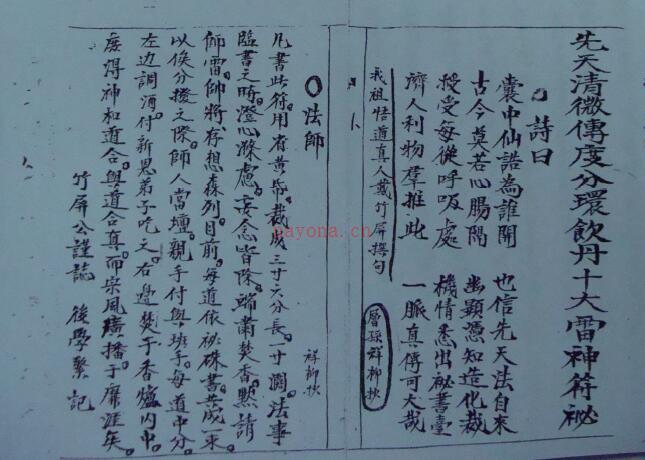 先天清微傳度分環飲丹十大雷神符祕
詩曰
囊中仙語為誰開 也信先天法自來
古今莫若心腸隔 幽顯憑知造化裁
授受每從呼吸處 機情悉出秘書臺
濟人利物群推此 一脈真傳可大哉
我祖悟道真人戴竹屏撰句
層孫祥柳抄
nayona.cn
法師 祥柳抄
凡書此符。用省黃帋。裁成三寸六分長。一寸濶。法事
臨書之時。澄心滌慮。妄念皆除。端肅焚香。黙請
師雷帥將。存想森列目前。每道依祕硃書。共成一束
以俟分撥之際。師人當壇。親手付與班手。每道中分。
左边調酒。付新恩弟子吃之。右邊焚于香爐內中。
庻得神和道合。與道合真。而宗風廣播于靡涯矣。
竹屏公謹誌 後學 記